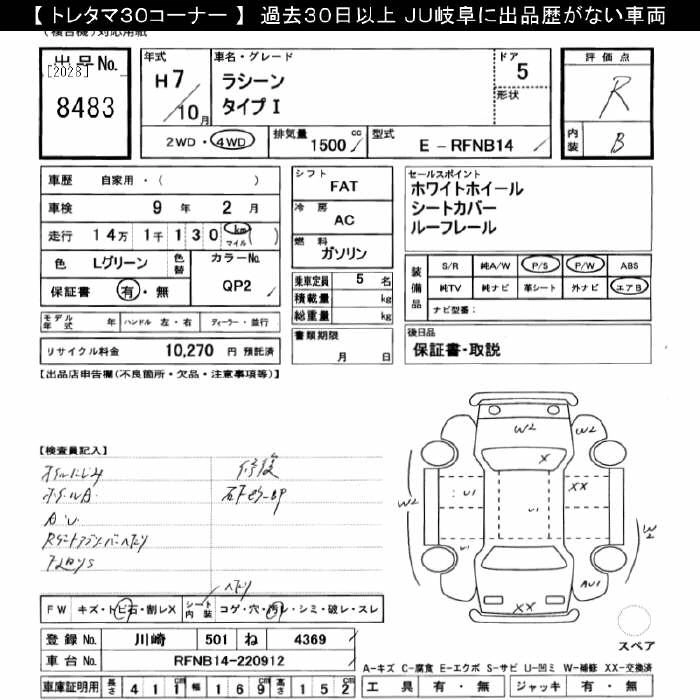 【 トレタマ30コーナー 】 過去30日以上 JU岐阜に出品歴がない車両
(検合機)対応用紙
出品No.
[2028]
8483
年式
H7
10月
車名・グレード
ラシーン
タイプ I
ドア
5
形状
評価点
R
内装
B
2WD ・ 4WD
排気量 1500 cc
型式 E - RFNB14
車歴 自家用・( )
車検 9 年 2 月
走行 14万 1千 130 km マイル ( )
色 Lグリーン 色替
カラーNo. QP2
保証書 有・無
モデル年式 年 ハンドル 左・右 ディーラー・並行
リサイクル料金 10,270 円 預託済
シフト
FAT
冷房
AC
燃料
ガソリン
乗車定員 5 名
積載量 kg
総重量 kg
書類期限
月 日
セールスポイント
ホワイトホイール
シートカバー
ルーフレール
装備品
S/R 純A/W P/S P/W ABS
純TV 純ナビ 革シート 外ナビ エアB
ナビ型番:
後日品
保証書・取説
【出品店申告欄(不良箇所・欠品・注意事項等)】
【検査員記入】
オイルにじみ
ホイールA
A U
修復
W2
W2
U2
X
W2
U1
U1
XX
U1
W2
AU1
XX
スペア
FW キズ・トビ石・割レX
シート内装 コゲ・穴・汚レ・シミ・破レ・スレ
ヘタリ
登録 No. 川崎 501 ね 4369
車台 No. RFNB14-220912
車庫証明用 長さ 411 cm 幅 169 cm 高さ 152 cm
A-キズ C-腐食 E-エクボ S-サビ U-凹ミ W-補修 XX-交換済
工具 有・無 ジャッキ 有・無